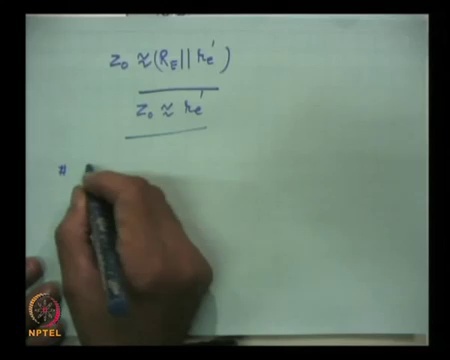 Zo ≈ (RE || re')
Zo ≈ re'
#
NPTEL